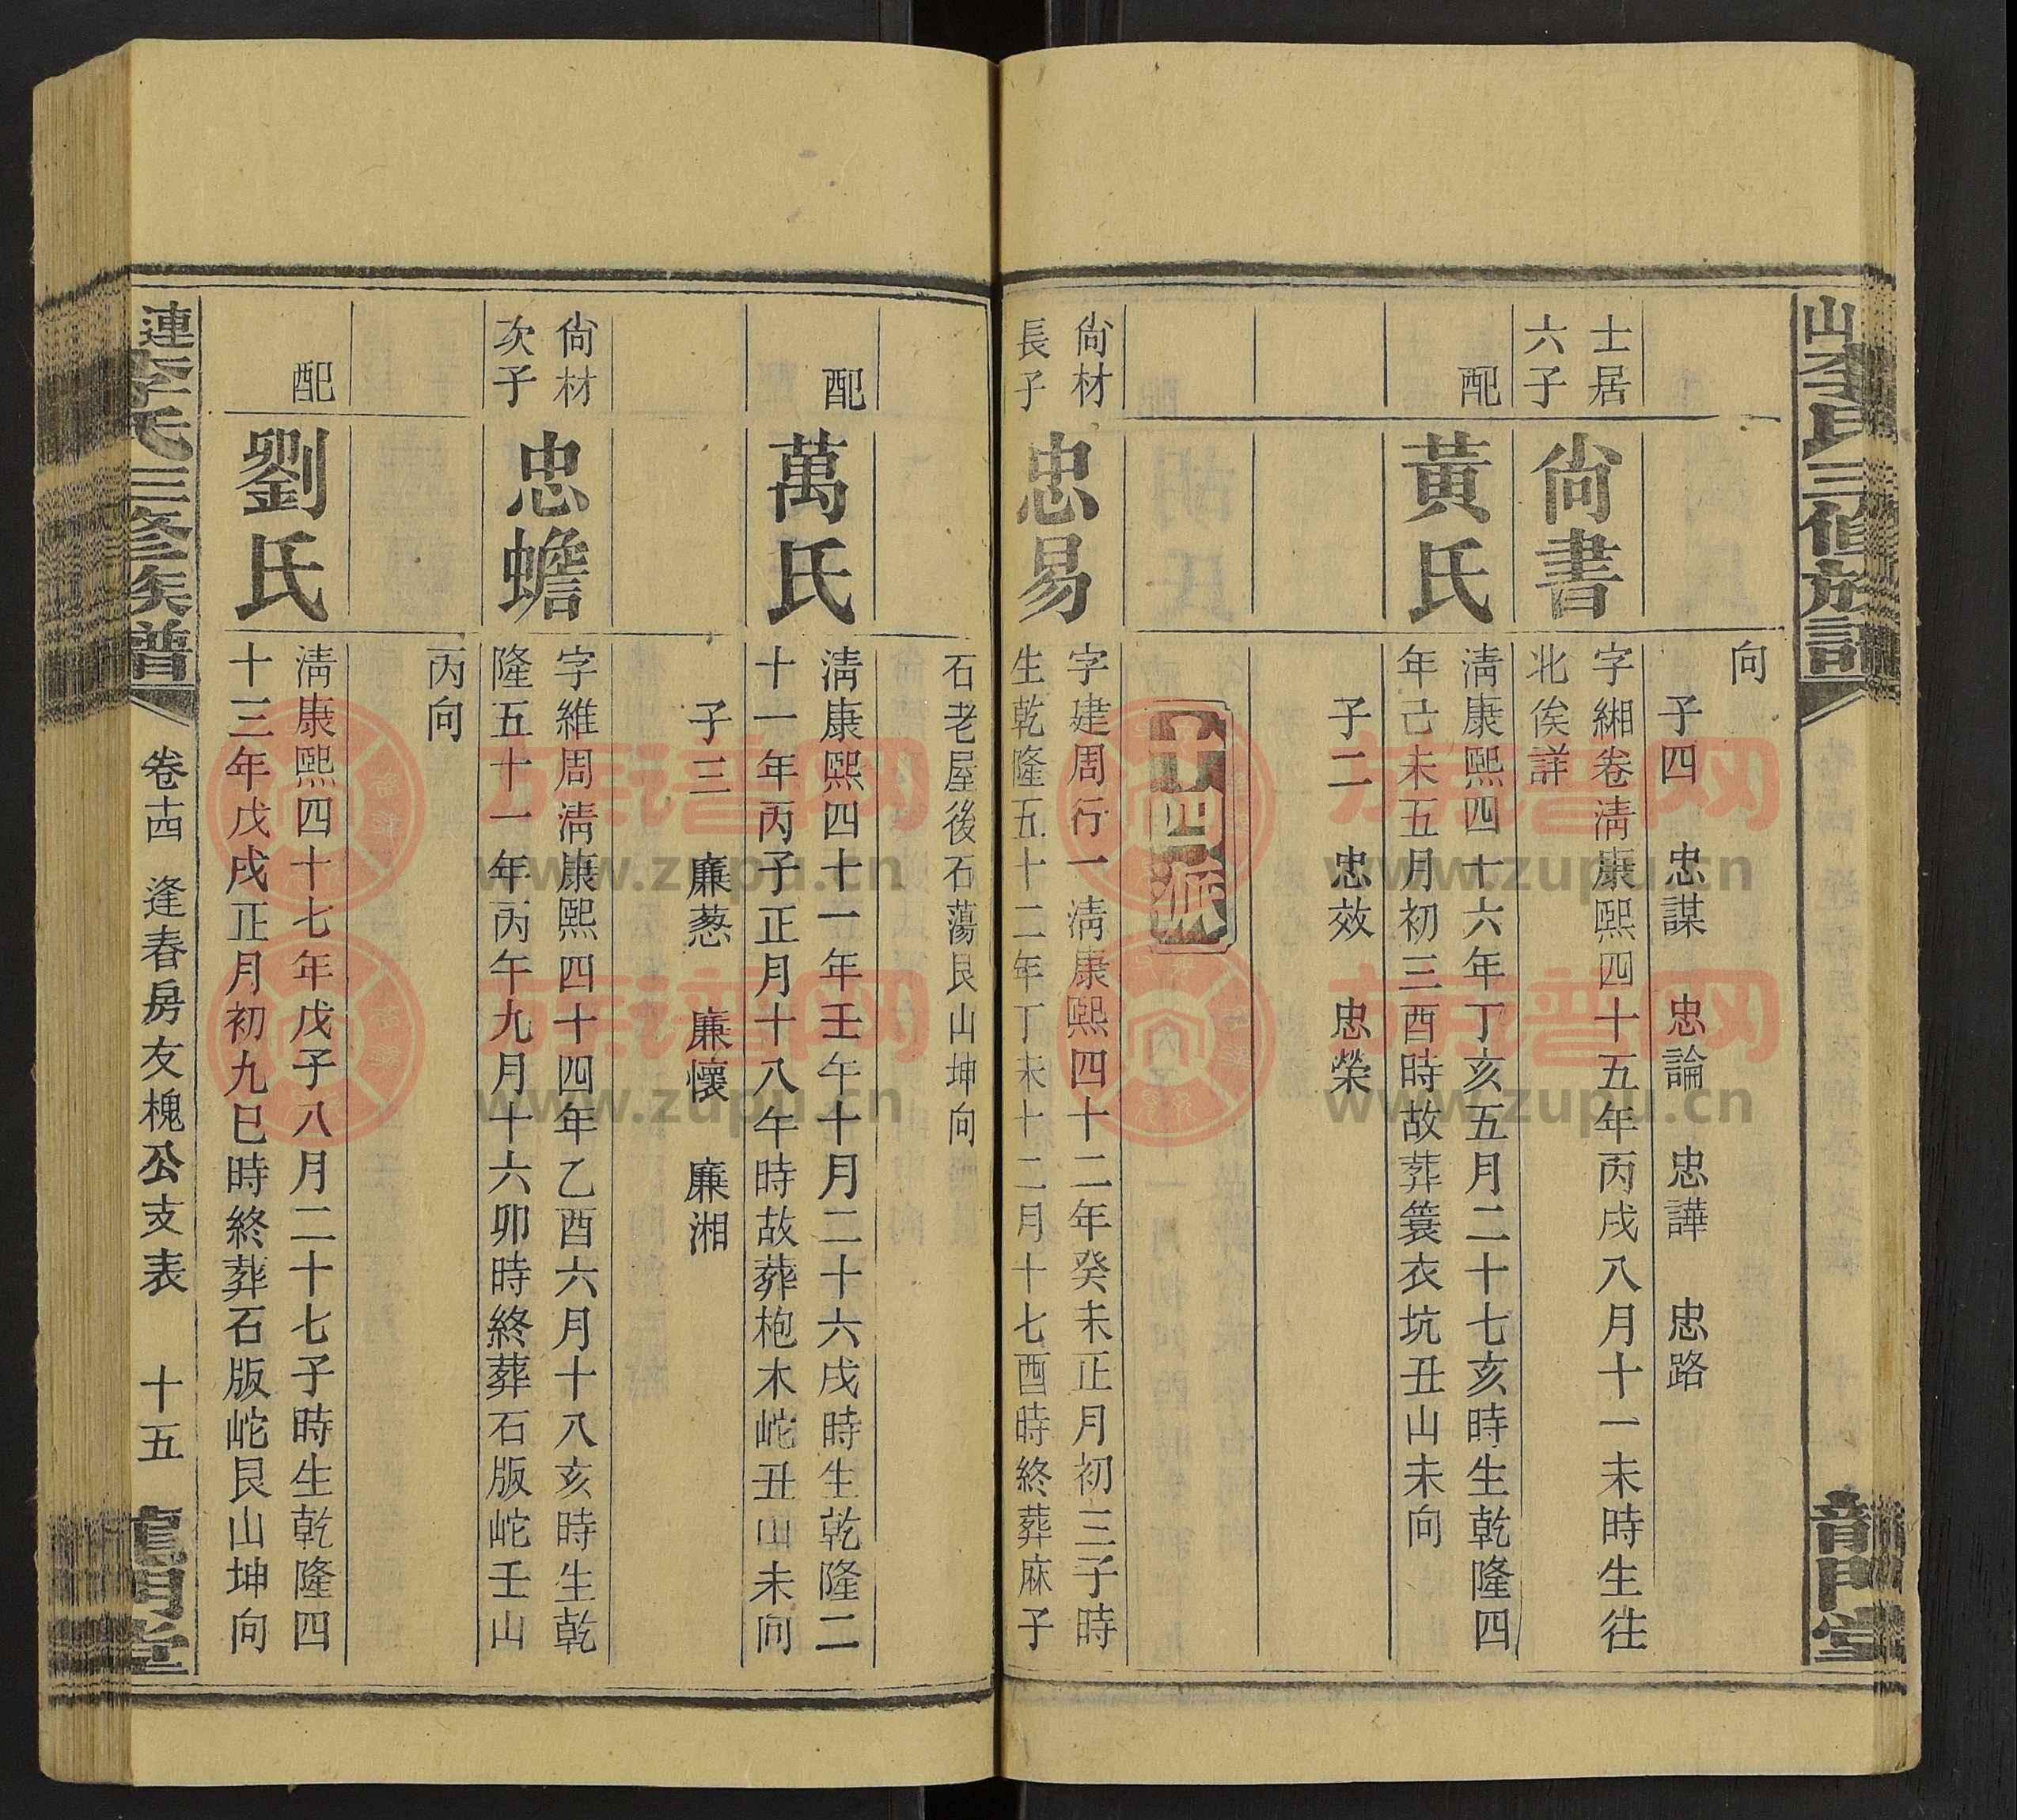 山李氏三修族譜
龍門堂
向
子四　忠謀　忠論　忠譁　忠路
士居
六子
尙書
字緗卷淸康熙四十五年丙戌八月十一未時生往
北俟詳
配
黃氏
淸康熙四十六年丁亥五月二十七亥時生乾隆四
年己未五月初三酉時故葬簑衣坑丑山未向
子二　忠效　忠榮
十四派
尙材
長子
忠易
字建周行一淸康熙四十二年癸未正月初三子時
生乾隆五十二年丁未十二月十七酉時終葬麻子
石老屋後石蕩艮山坤向
配
萬氏
淸康熙四十一年壬午十月二十六戌時生乾隆二
十一年丙子正月十八午時故葬枹木𡵺丑山未向
子三　廉蔥　廉懷　廉湘
尙材
次子
忠蟾
字維周淸康熙四十四年乙酉六月十八亥時生乾
隆五十一年丙午九月十六卯時終葬石版𡵺壬山
丙向
配
劉氏
淸康熙四十七年戊子八月二十七子時生乾隆四
十三年戊戌正月初九巳時終葬石版𡵺艮山坤向
連李氏三修族譜
卷十四　逢春房友槐公支表　十五
龍門堂
族谱网
www.zupu.cn
族谱网
www.zupu.cn
族谱网
www.zupu.cn
族谱网
www.zupu.cn